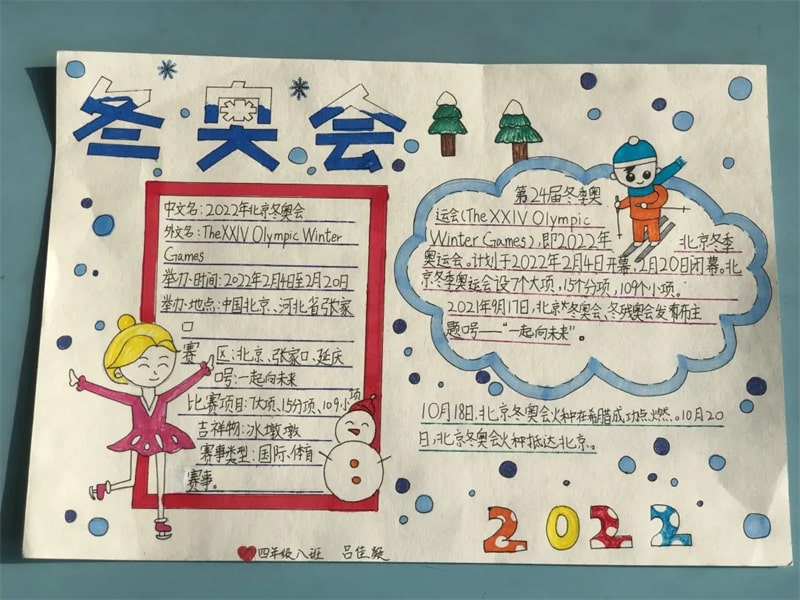 冬奥会
中文名:2022年北京冬奥会
外文名:The XXIV Olympic Winter
Games
举办时间:2022年2月4日至2月20日
举办地点:中国北京、河北省张家
口
赛 区:北京、张家口、延庆
口号:一起向未来
比赛项目:7大项、15分项、109小项
吉祥物:冰墩墩
赛事类型:国际体育
赛事。
第24届冬季奥
运会(The XXIV Olympic
Winter Games),即2022年 北京冬季
奥运会,计划于2022年2月4日开幕,2月20日闭幕。北
京冬季奥运会设7个大项,15个分项,109个小项。
2021年9月17日,北京冬奥会、冬残奥会发布主
题口号——“一起向未来”。
10月18日,北京冬奥会火种在希腊成功点燃。10月20
日,北京冬奥会火种抵达北京。
2022
四年级八班 吕佳